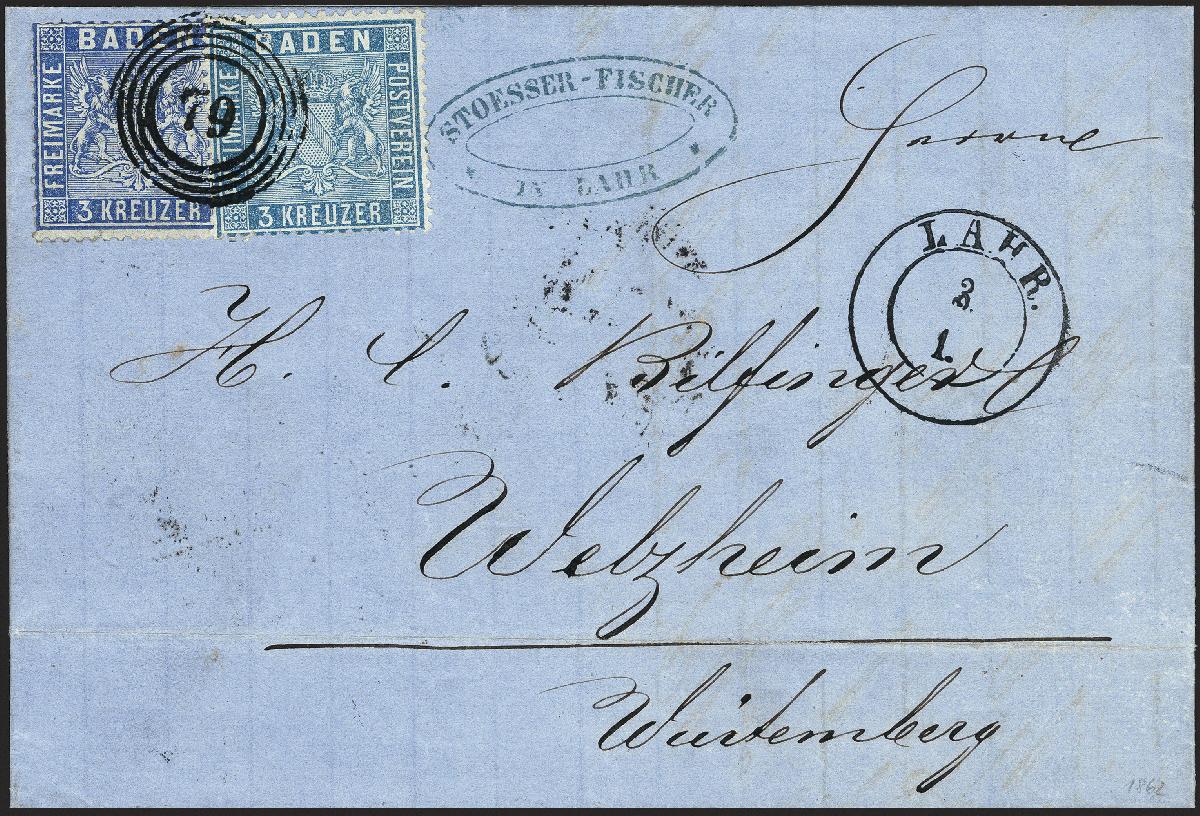 BADEN
FREIMARKE
3 KREUZER
BADEN
FREIMARKE POSTVEREIN
3 KREUZER
79
STOESSER-FISCHER
IN LAHR
LAHR.
3.
1.
H. C. Bilfinger
Welzheim
Würtemberg
1862